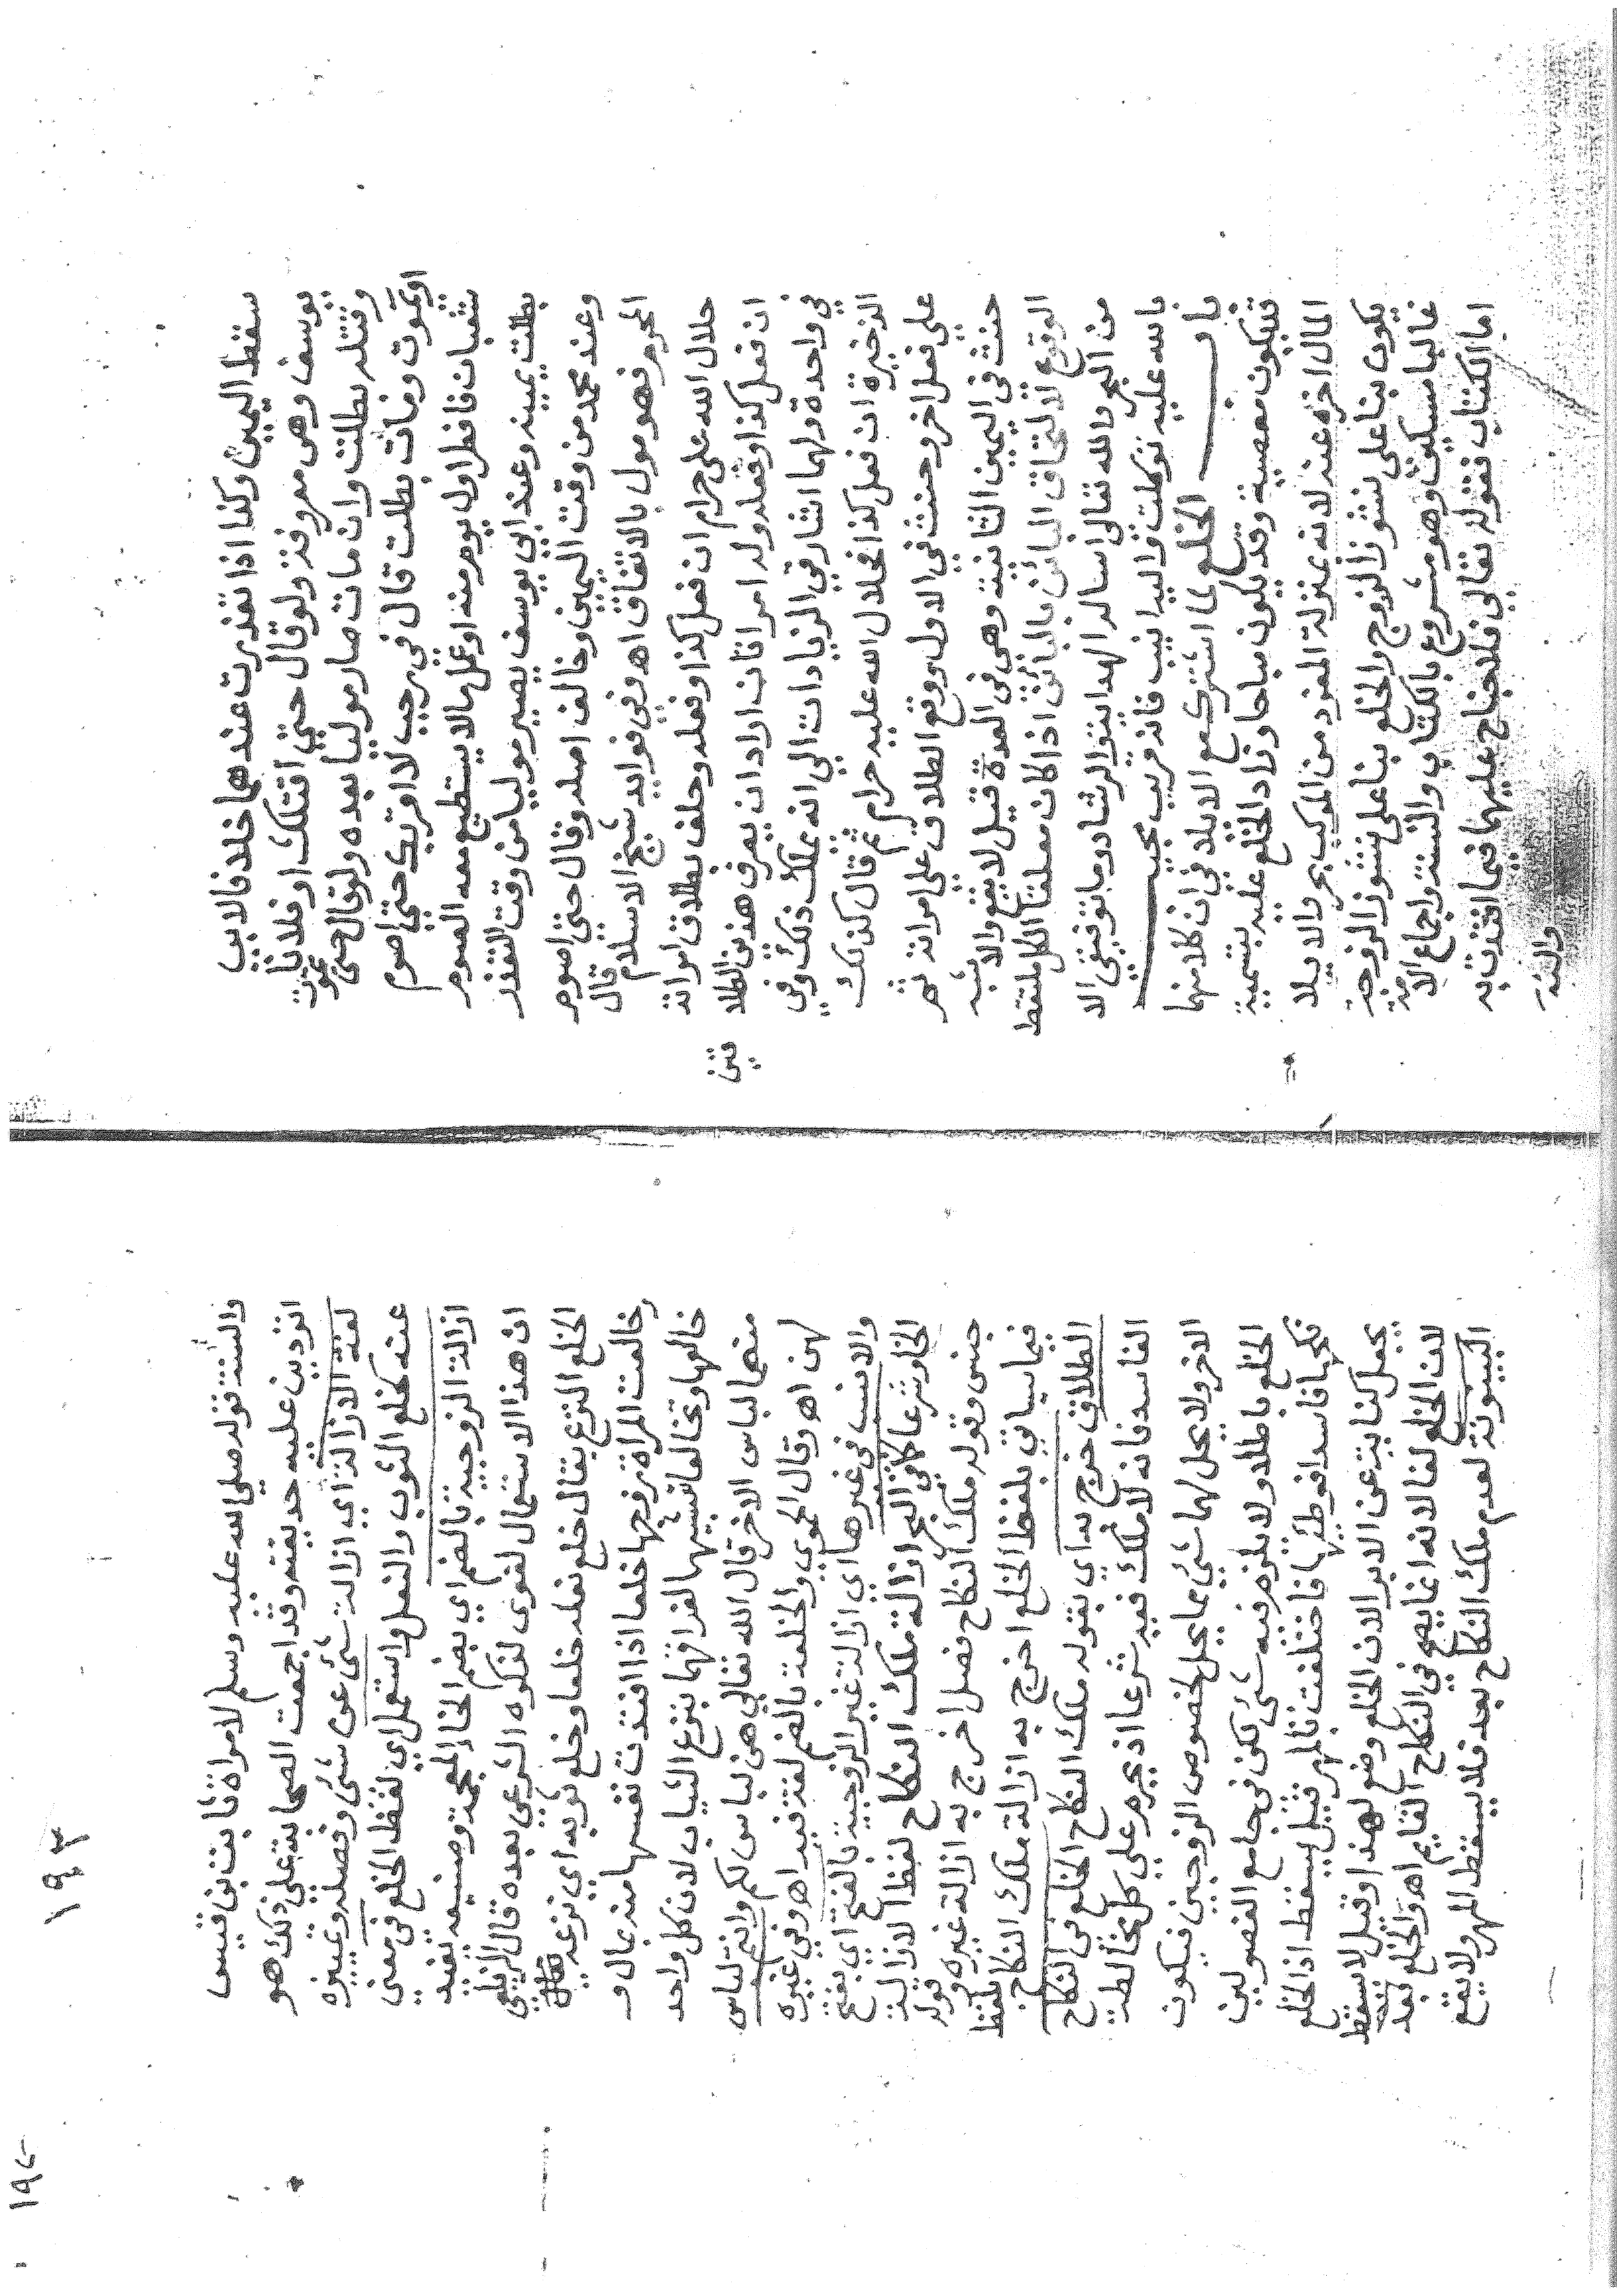 سقط اليمين وكذا اذا تقذرت عندهما خلافا لابي
يوسف وهي معروفة ولو قال حتى اقتلك او فلانا
وقتله بطلت وان مات صار موليا بعده ولو قال حتى تموت
او يموت ومات بطلت قال في رجب لا اقربك حتى اصوم
شعبان فافطر اول يوم منه او عمل ما لا يستطيع معه الصوم
بطلت يمينه وعند ابي يوسف يصير موليا من وقت التقذر
وعند محمد من وقت اليمين وخالف اصله وقال حتى اصوم
المحرم فهو مول بالاتفاق اه وفي فوايد شيخ الاسلام قال
حلال الله علي حرام ان فعل كذا وفعله وحلف بطلاق امراته
ان فعل كذا وفعله وله امراتان اراد ان يصرف هذين الطلا
قين
في واحدة ولهما اشار في الزيادات الى انه يملك ذلك وفي
الذخيرة ان فعل كذا فحلال الله عليه حرام ثم قال كذلك
على فعل اخر وحنث في الاول ووقع الطلاق على امراته ثم
حنث في اليمين الثانية وهي في العدة قيل لا يقع والاشبه
الوقوع لالتحاق البائن بالبائن اذا كان معلقا الكل ملتقط
من البحر بالله تعالى اسالي الهداية والرشاد وما توفيقي الا
بالله عليه توكلت واليه انيب فانه قريب مجيب
باب الخلع لما اشترك مع الايلا في ان كلا منهما
قد يكون معصية وقد يكون مباحا وزاد الخلع عليه بتسمية
المال اخره عنه لانه بمنزلة المفرد من المركب والايلا
يكون بنا على نشوز الزوج والخلع بنا على نشوز الزوجة
غالبا مسكين وهو مشروع بالكتاب والسنة واجماع الامة
اما الكتاب فقوله تعالى فلا جناح عليهما فيما افتدت به
والسنة
١٩٣
والسنة قوله صلى الله عليه وسلم لامراة ثابت بن قيس
اتردين عليه حديقته وقد اجمعت الصحابة على ذلك هو
لغة الازالة اي ازالة شئ عن شئ وفصله وتمييزه
عنه كخلع الثوب والنعل واستعمل اي لفظ الخلع في معنى
ازالة الزوجية بالضم اي بضم الخا المعجمة وصنيعه يفيد
ان هذا الاستعمال لغوي لذكره الشرعي بعده قال الزيلعي
الخلع النزع يقال خلع نعله خلعا وخلع ثوبه اي نزعه يقال
خالعت المراة زوجها خلعا اذا افتدت نفسها منه بمال و
خالعها وتخالعا تشبيها لفراقهما بنزع الثياب لان كل واحد
منهما لباس الاخر قال الله تعالى هن لباس لكم وانتم لباس
لهن اه وقال الحموي والخلعة بالضم لغة فيه اه وفي غيره
والاسم في غيرها اي ازالة غير الزوجية بالفتح اي بفتح
الخا وشرعا كما في البحر ازالة ملك النكاح لفظ الازالة
جنس وقوله ملك النكاح فصل اخرج به ازالة غيره وقوله
فيما سياتي بلفظ الخلع اخرج به ازالة ملك النكاح بلفظ
الطلاق خرج به اي بقوله ملك النكاح الخلع في النكاح
الفاسد فانه لا ملك فيه شرعا اذ يحرم على كل مخالطة
الاخر ولا يحل لهما شئ مما يحل لخصوص الزوجين فيكون
الخلع باطلا ولا يلزم فيه شئ لكن في جامع الفصولين
نكحها فاسدا فوطئها فاختلعت بالمهر قيل يسقط اذ الخلع
يجعل كناية عن الابرا لان الخلع وضع لهذا وقيل لا يسقط
لان الخلع لغا لانه انما يصح في النكاح القايم اه والخلع بعد
البينونة لعدم ملك النكاح بعد فلا يسقط المهر ولا يقع